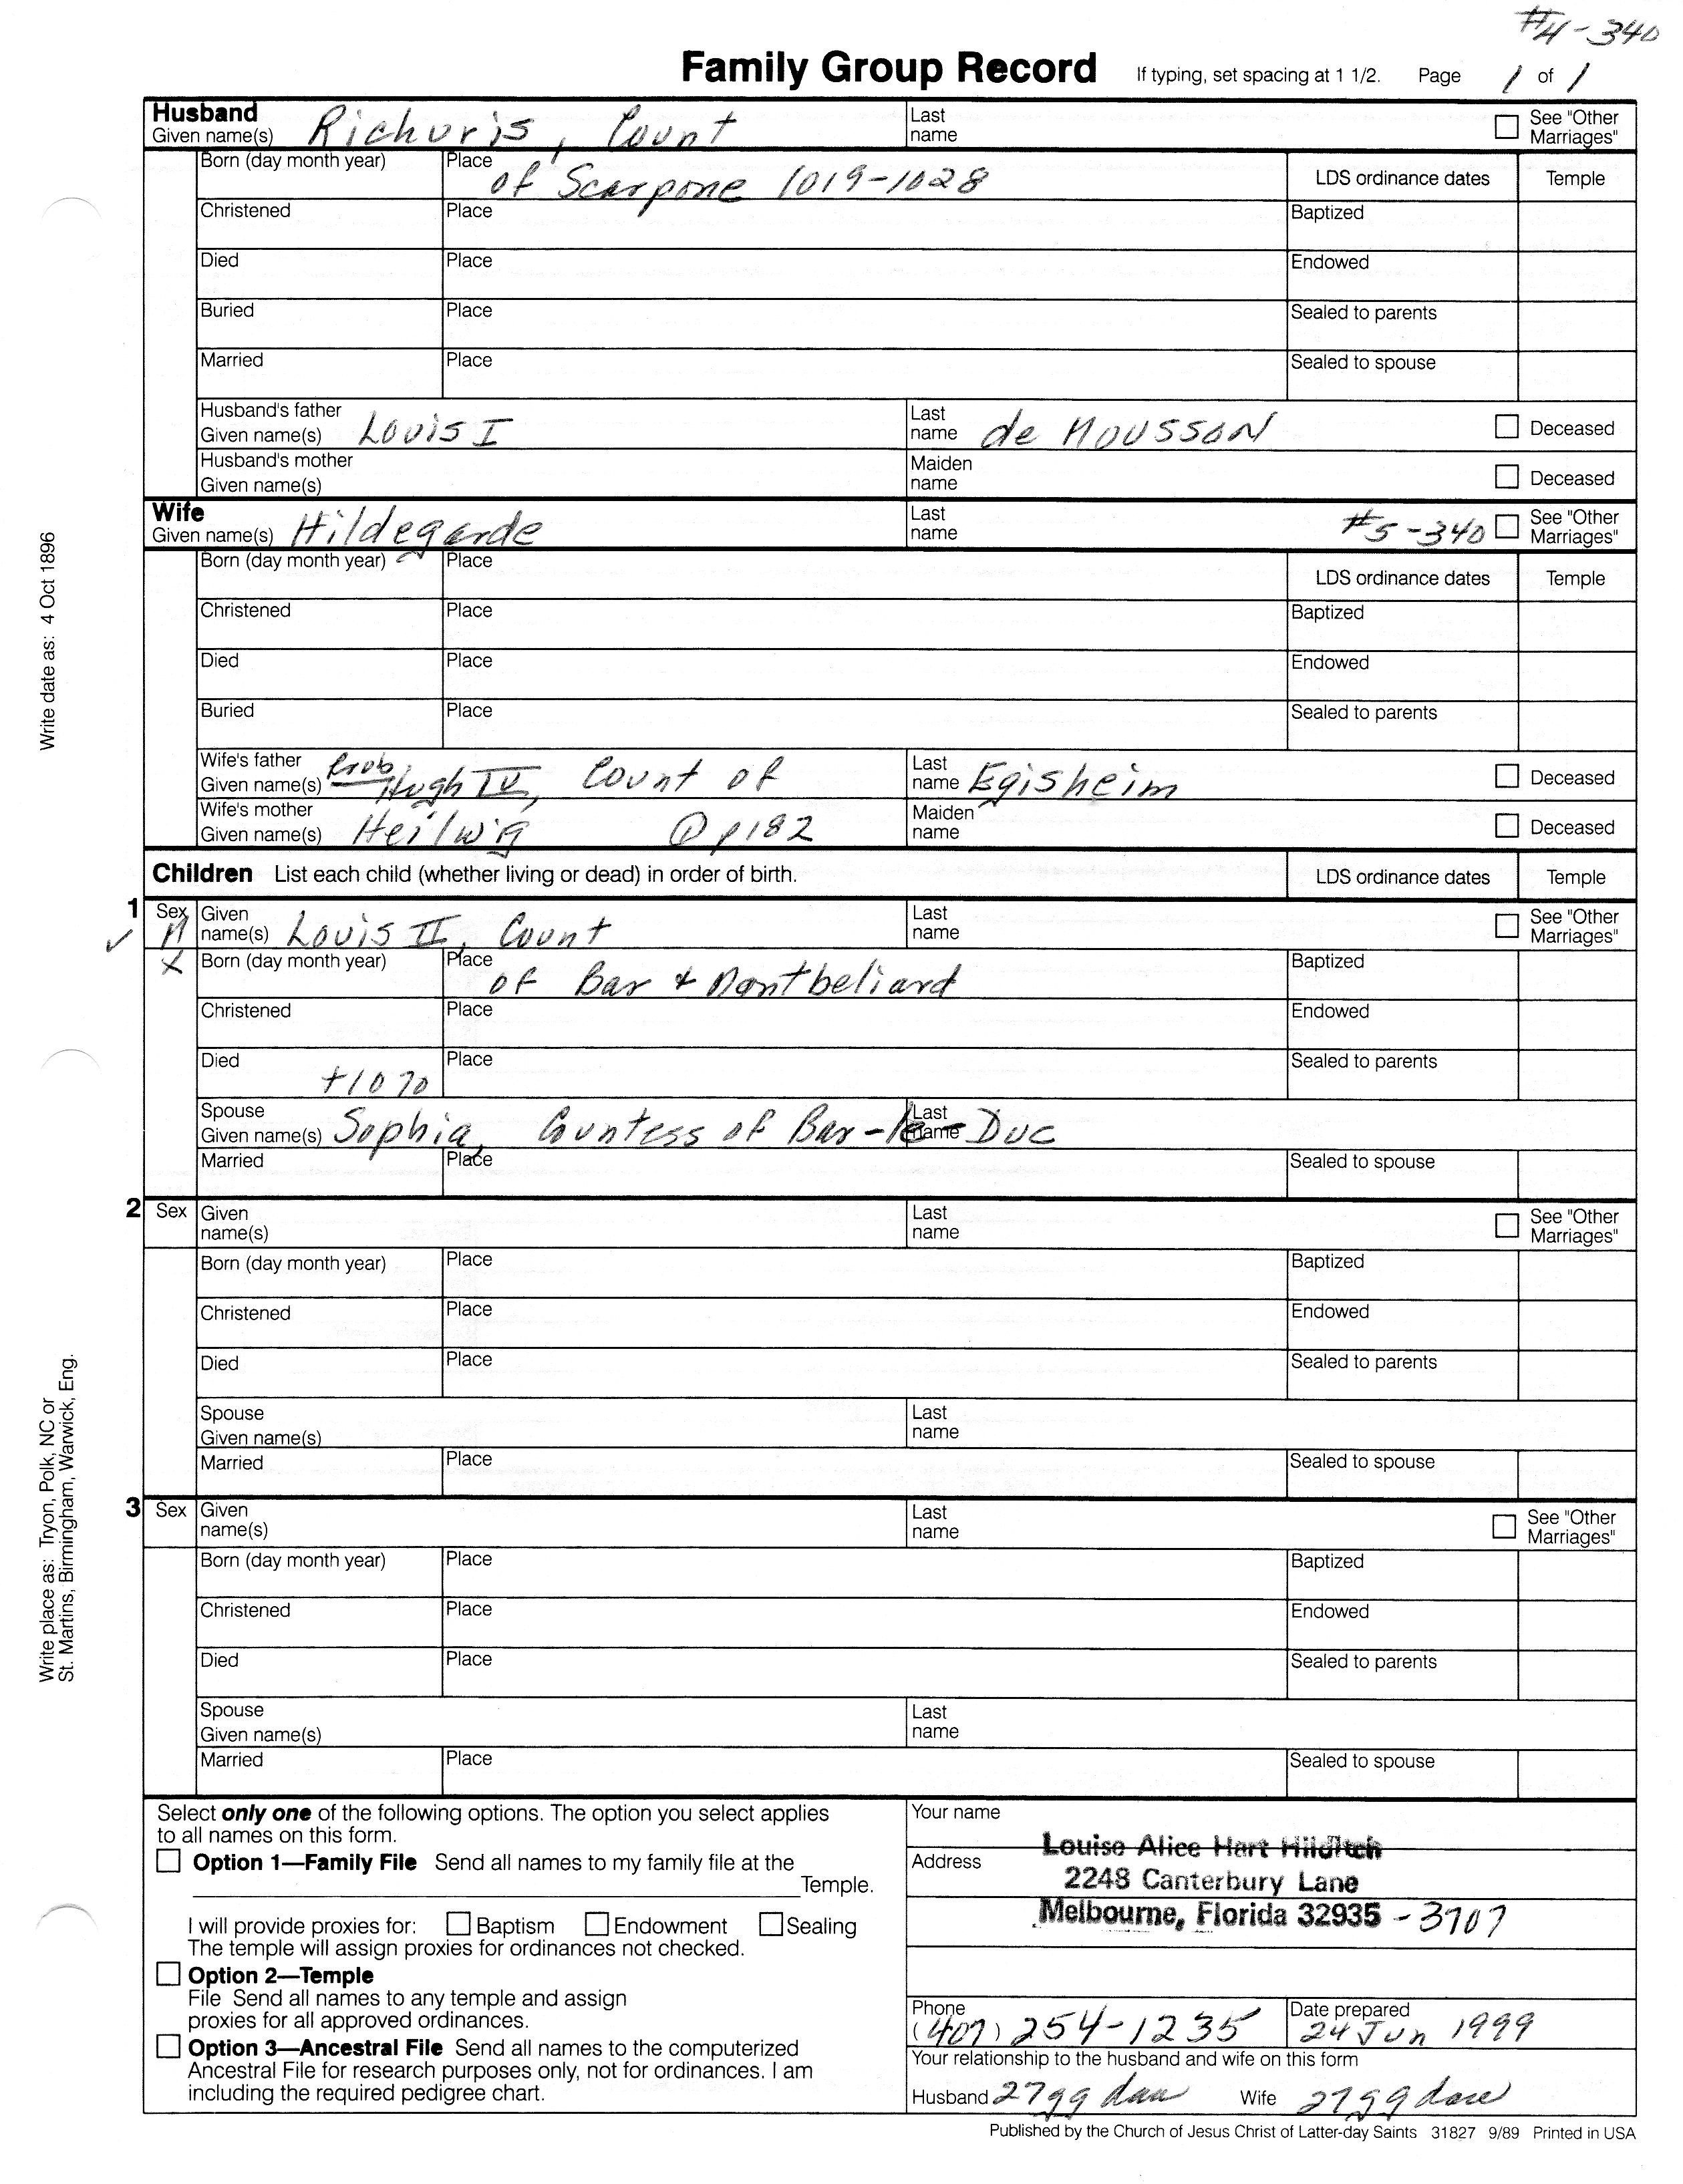 #4-340
Family Group Record If typing, set spacing at 1 1/2. Page 1 of 1
Husband
Given name(s) Richuris, Count
Last name
See "Other Marriages"
Born (day month year)
Place of Scarpone 1019-1028
LDS ordinance dates Temple
Christened Place Baptized
Died Place Endowed
Buried Place Sealed to parents
Married Place Sealed to spouse
Husband's father
Given name(s) Louis I
Last name de MOUSSON
Deceased
Husband's mother
Given name(s)
Maiden name
Deceased
Wife
Given name(s) Hildegarde
Last name #5-340
See "Other Marriages"
Born (day month year) Place LDS ordinance dates Temple
Christened Place Baptized
Died Place Endowed
Buried Place Sealed to parents
Wife's father
Given name(s) Prob Hugh IV, Count of
Last name Egisheim
Deceased
Wife's mother
Given name(s) Heilwig @ p182
Maiden name
Deceased
Children List each child (whether living or dead) in order of birth. LDS ordinance dates Temple
1 Sex M
Given name(s) Louis II, Count
Last name
See "Other Marriages"
✓
X
Born (day month year)
Place of Bar + Montbeliard
Baptized
Christened Place Endowed
Died +1070 Place Sealed to parents
Spouse
Given name(s) Sophia, Countess of Bar-le-Duc
Last name
Married Place Sealed to spouse
2 Sex Given name(s) Last name See "Other Marriages"
Born (day month year) Place Baptized
Christened Place Endowed
Died Place Sealed to parents
Spouse
Given name(s) Last name
Married Place Sealed to spouse
3 Sex Given name(s) Last name See "Other Marriages"
Born (day month year) Place Baptized
Christened Place Endowed
Died Place Sealed to parents
Spouse
Given name(s) Last name
Married Place Sealed to spouse
Select only one of the following options. The option you select applies
to all names on this form.
Option 1—Family File Send all names to my family file at the
Temple.
I will provide proxies for: Baptism Endowment Sealing
The temple will assign proxies for ordinances not checked.
Option 2—Temple
File Send all names to any temple and assign
proxies for all approved ordinances.
Option 3—Ancestral File Send all names to the computerized
Ancestral File for research purposes only, not for ordinances. I am
including the required pedigree chart.
Your name
Louise Alice Hart Hilditch
Address
2248 Canterbury Lane
Melbourne, Florida 32935 -3707
Phone
(407) 254-1235
Date prepared
24 Jun 1999
Your relationship to the husband and wife on this form
Husband 27 gg dau Wife 27 gg dau
Published by the Church of Jesus Christ of Latter-day Saints 31827 9/89 Printed in USA
Write date as: 4 Oct 1896
Write place as: Tryon, Polk, NC or
St. Martins, Birmingham, Warwick, Eng.